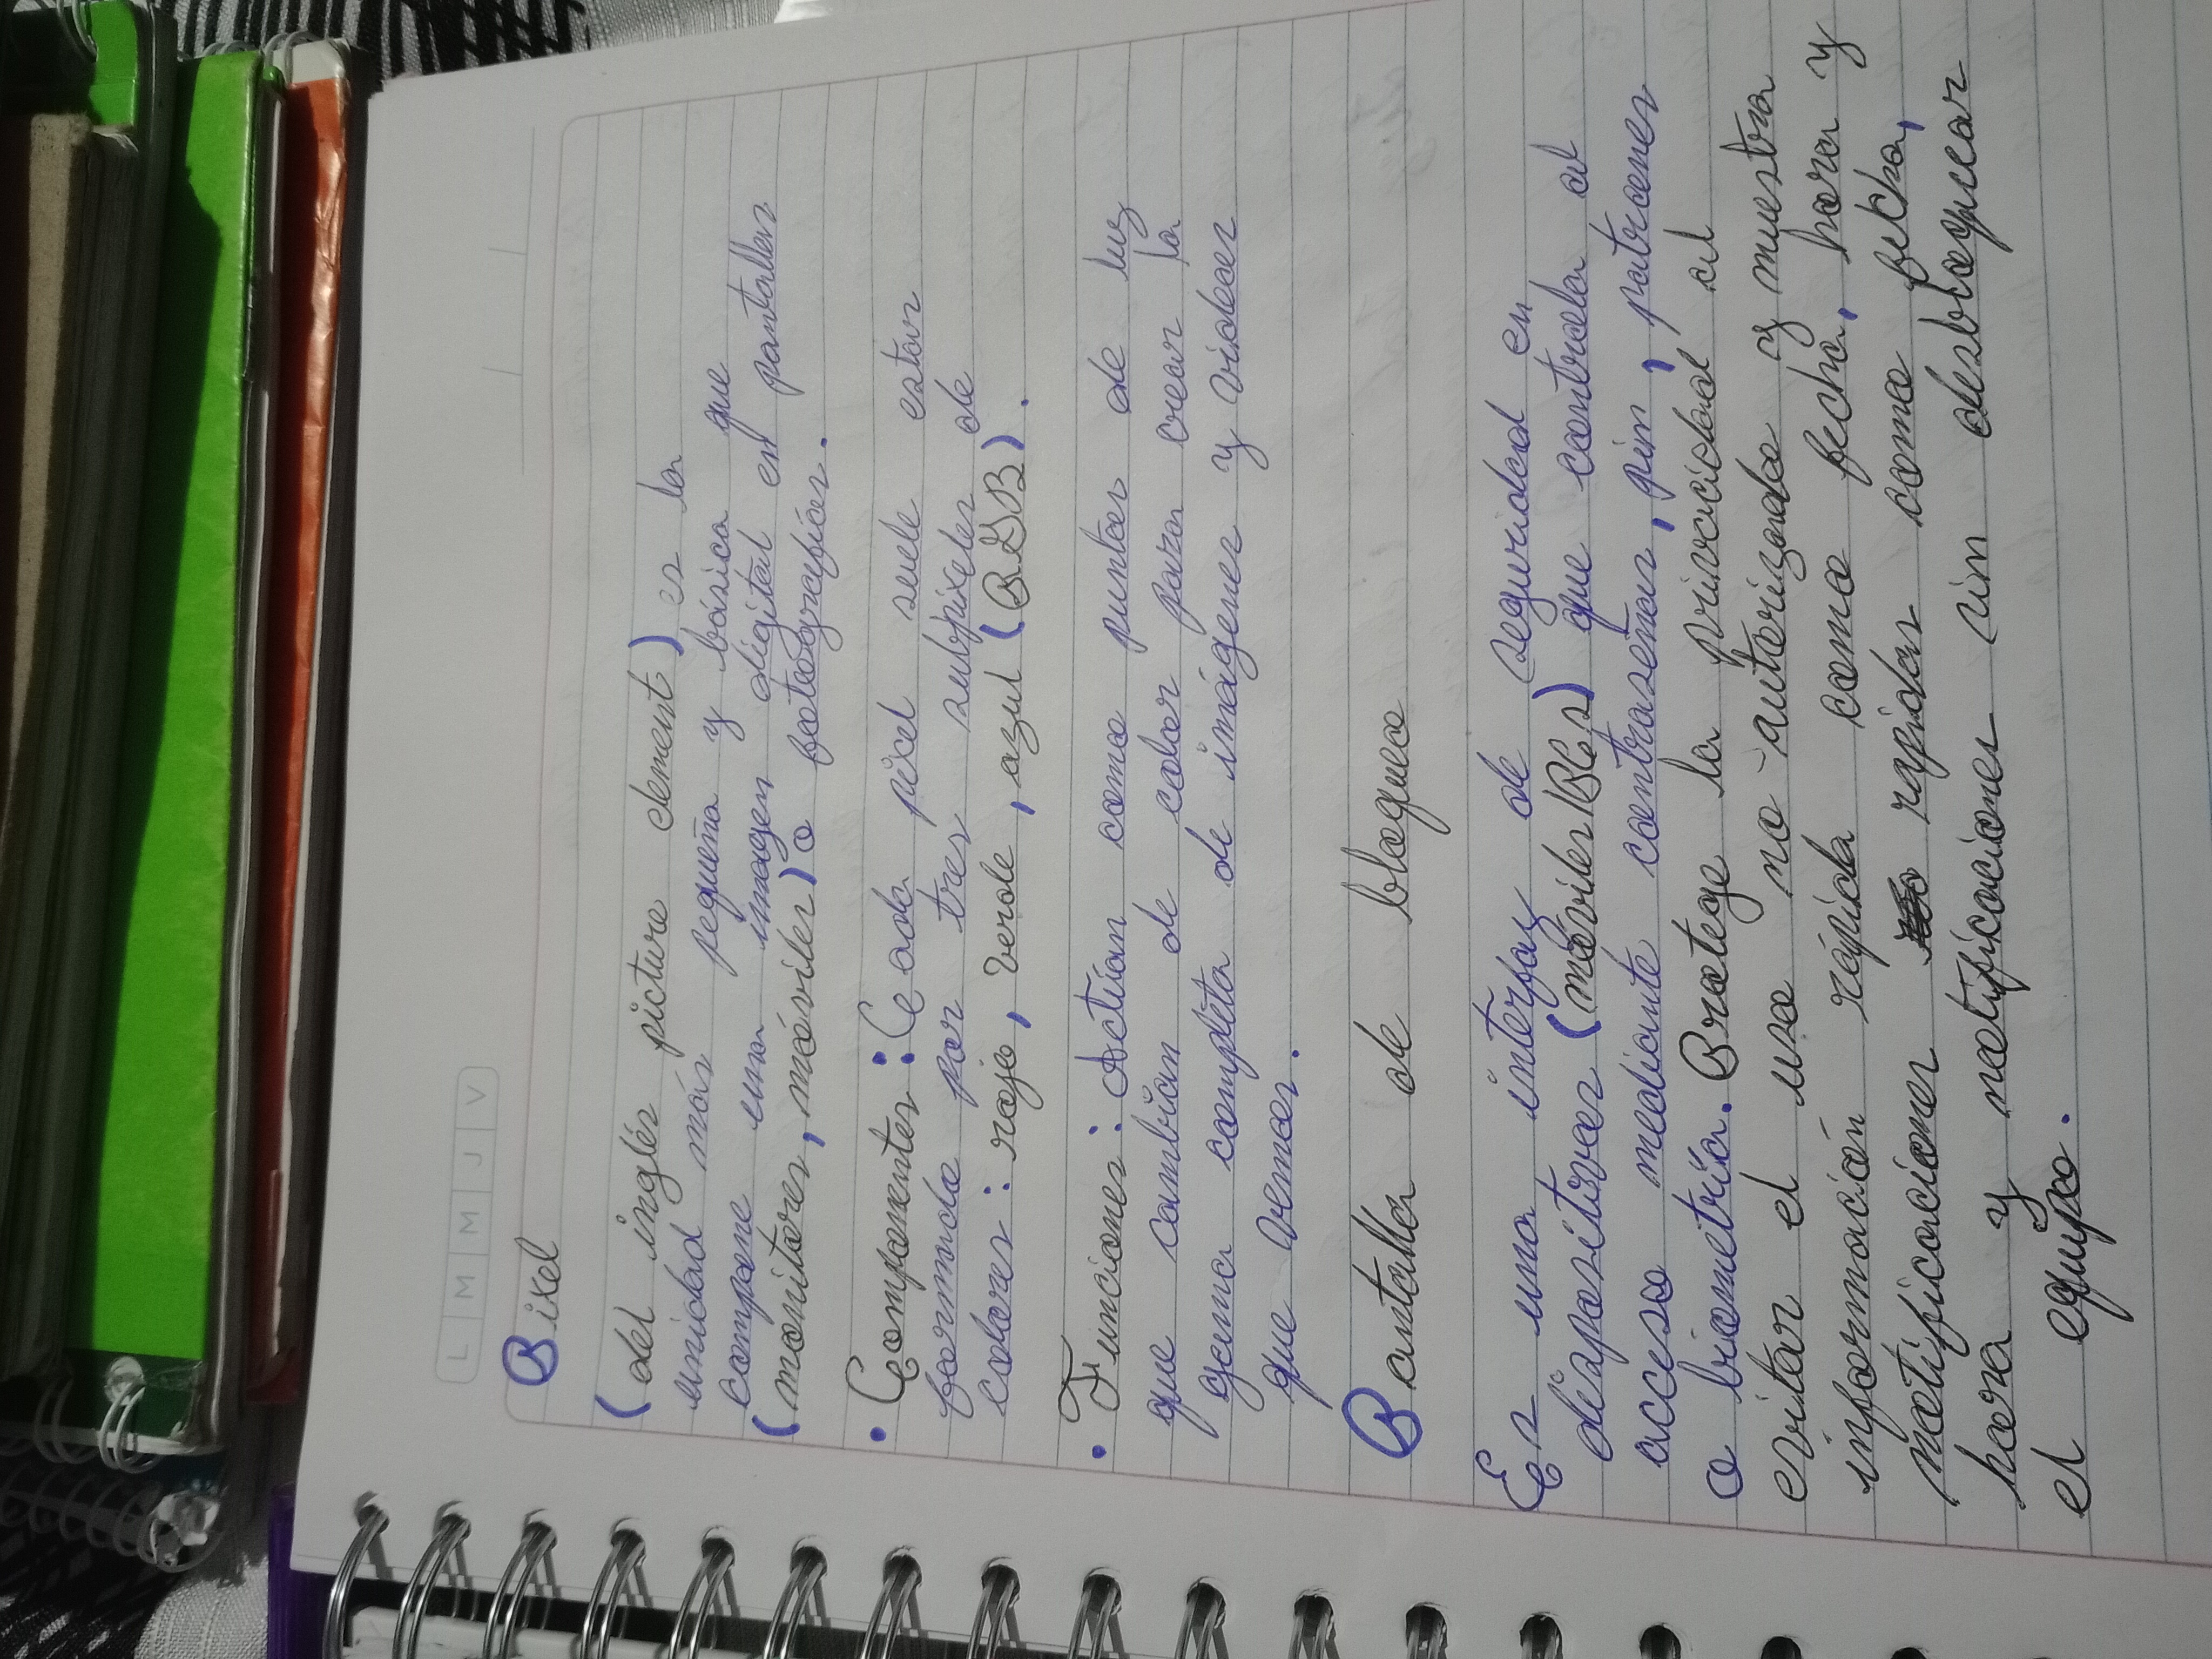 L M M J V
Pixel
(del inglés picture element) es la
unidad más pequeña y básica que
compone una imagen digital en pantallas
(monitores, móviles) o fotográficas.
• Componentes: Cada pixel suele estar
formado por tres subpixeles de
colores: rojo, verde, azul (RGB).
• Funciones: Actúan como puntos de luz
que cambian de color para crear la
gama completa de imágenes y videos
que vemos.
Pantalla de bloqueo
Es una interfaz de seguridad en
dispositivos (móviles/PCs) que controla el
acceso mediante contraseñas, pin, patrones
o biometría. Protege la privacidad al
evitar el uso no autorizado y muestra
información rápida como fecha, hora y
notificaciones rapidas como fecha,
hora y notificaciones sin desbloquear
el equipo.